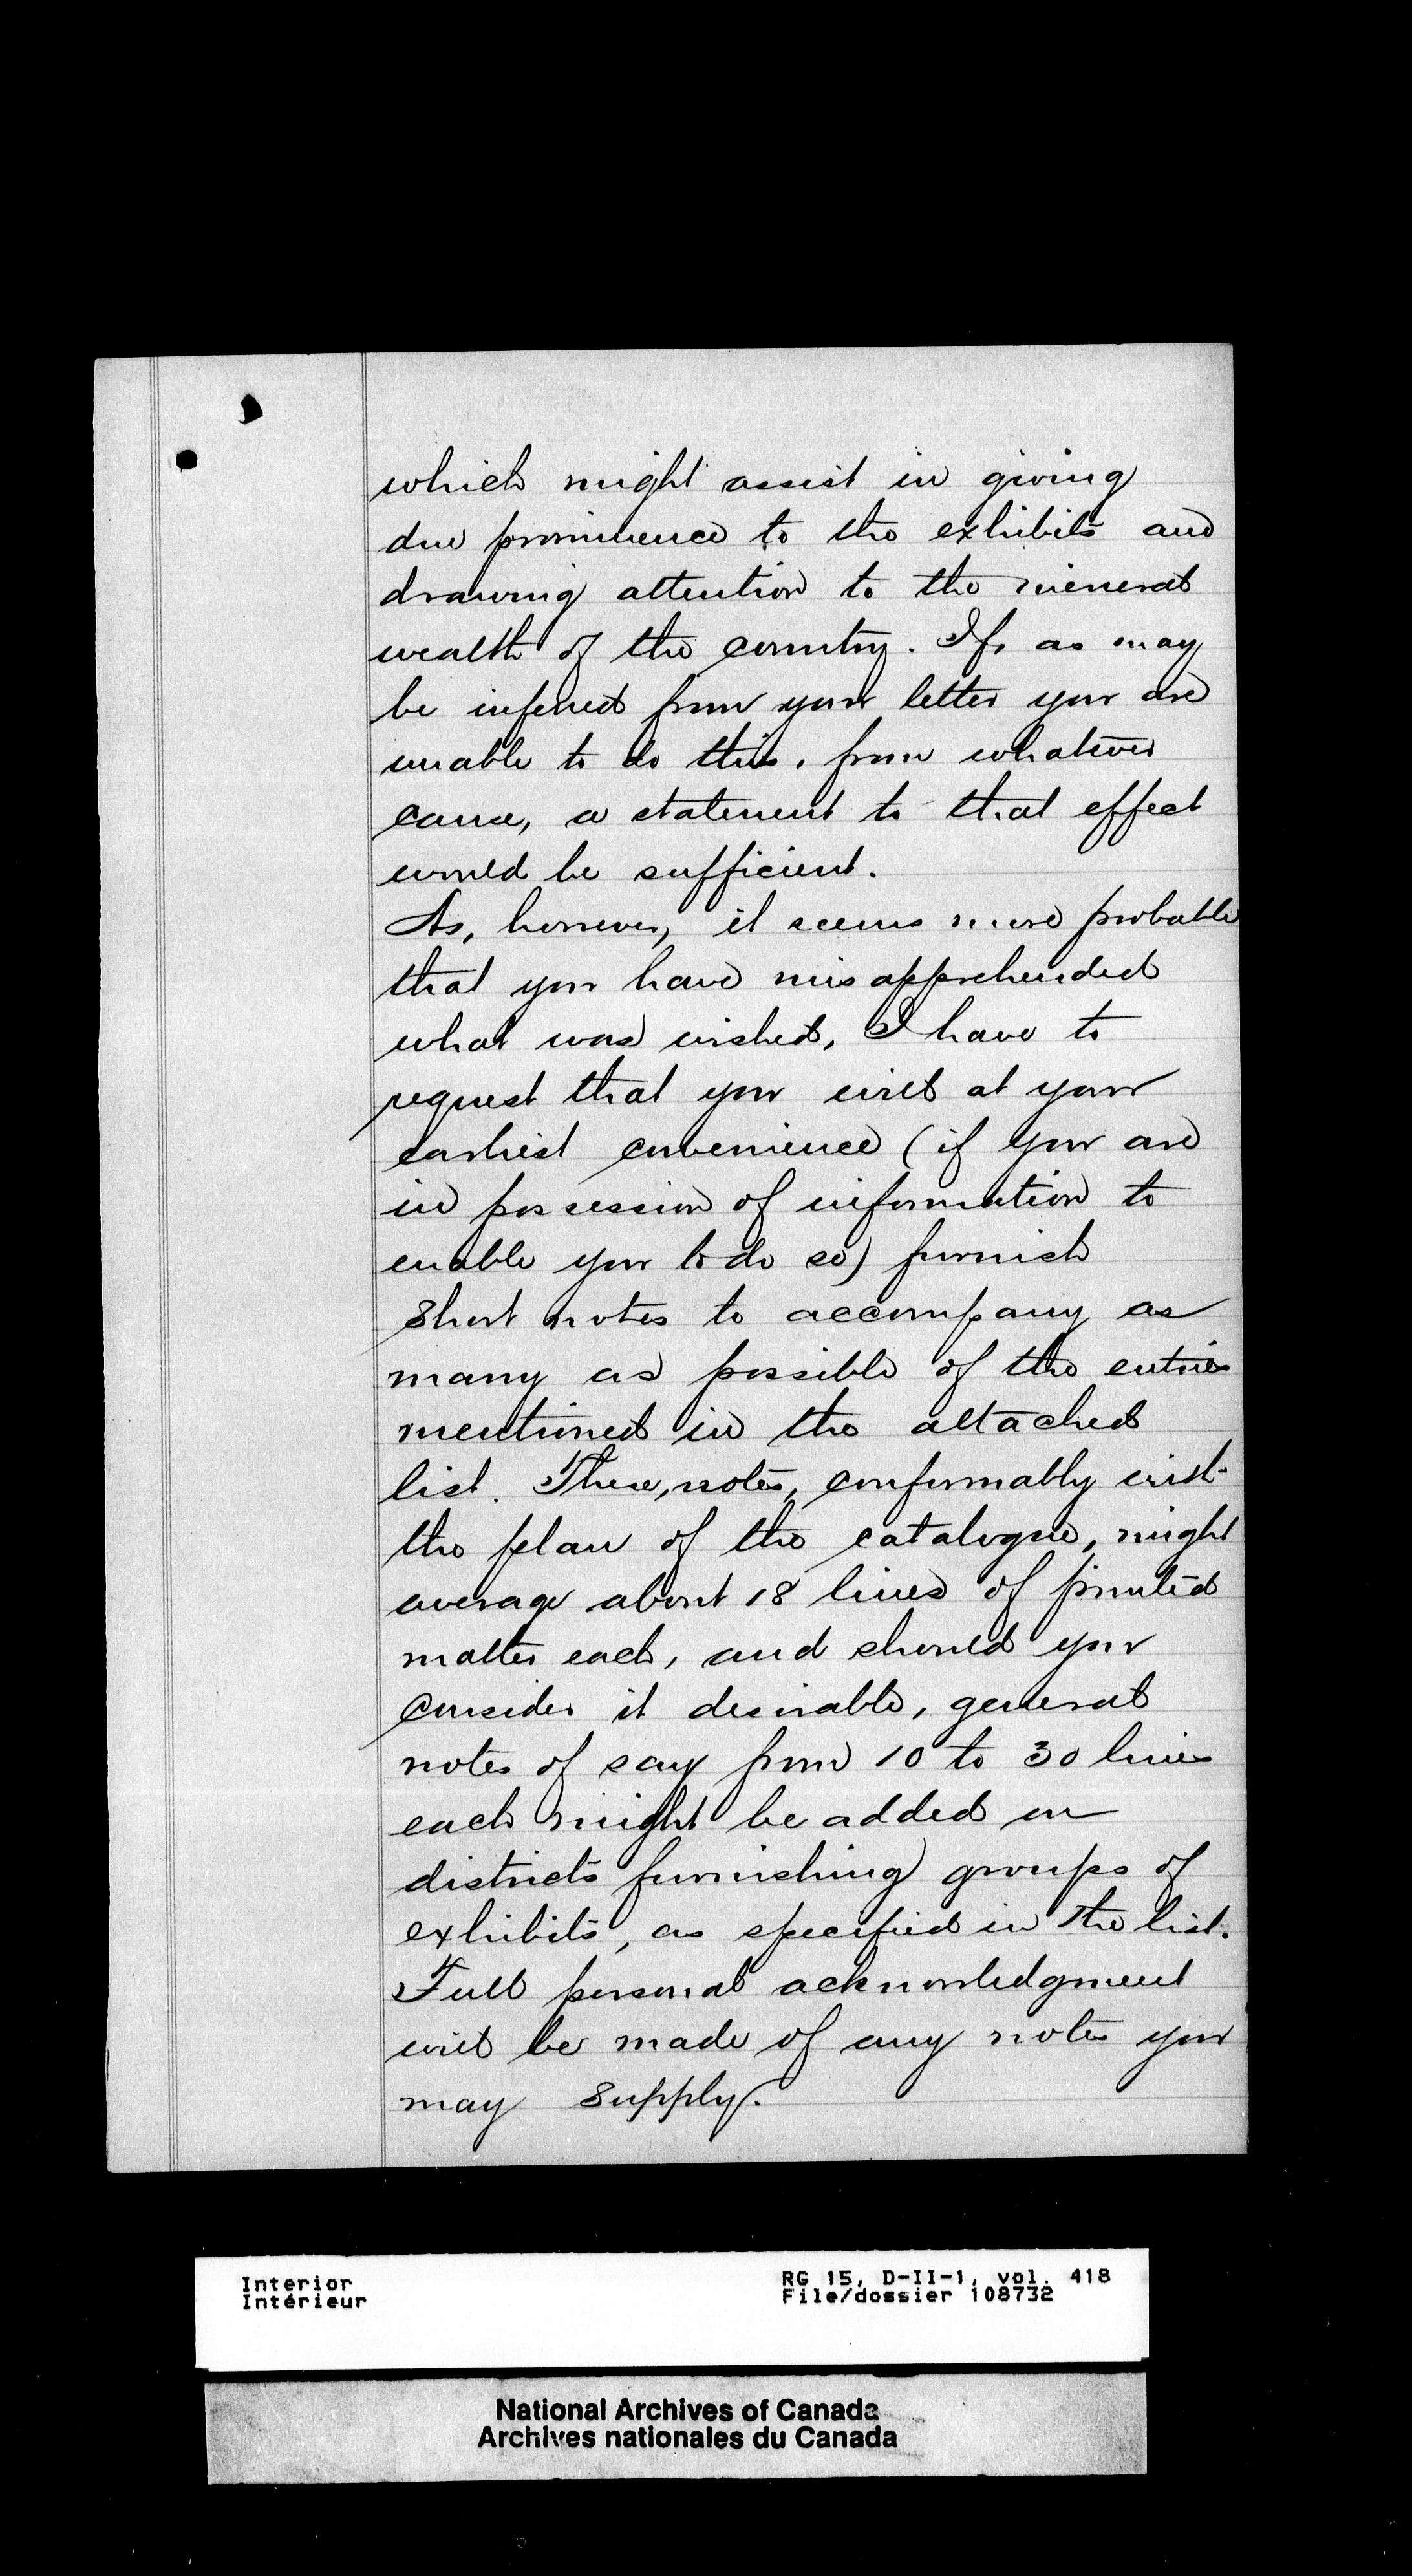 which might assist in giving
due prominence to the exhibits and
drawing attention to the mineral
wealth of the country. If, as may
be inferred from your letter you are
unable to do this, from whatever
cause, a statement to that effect
would be sufficient.
As, however, it seems more probable
that you have misapprehended
what was wished, I have to
request that you will at your
earliest convenience (if you are
in possession of information to
enable you to do so) furnish
short notes to accompany as
many as possible of the entries
mentioned in the attached
list. These, notes, conformably with
the plan of the catalogue, might
average about 18 lines of printed
matter each, and should you
consider it desirable, general
notes of say from 10 to 30 lines
each might be added on
districts furnishing groups of
exhibits, as specified in the list.
Full personal acknowledgment
will be made of any notes you
may supply.
Interior
Intérieur
RG 15, D-II-1, vol. 418
File/dossier 108732
National Archives of Canada
Archives nationales du Canada